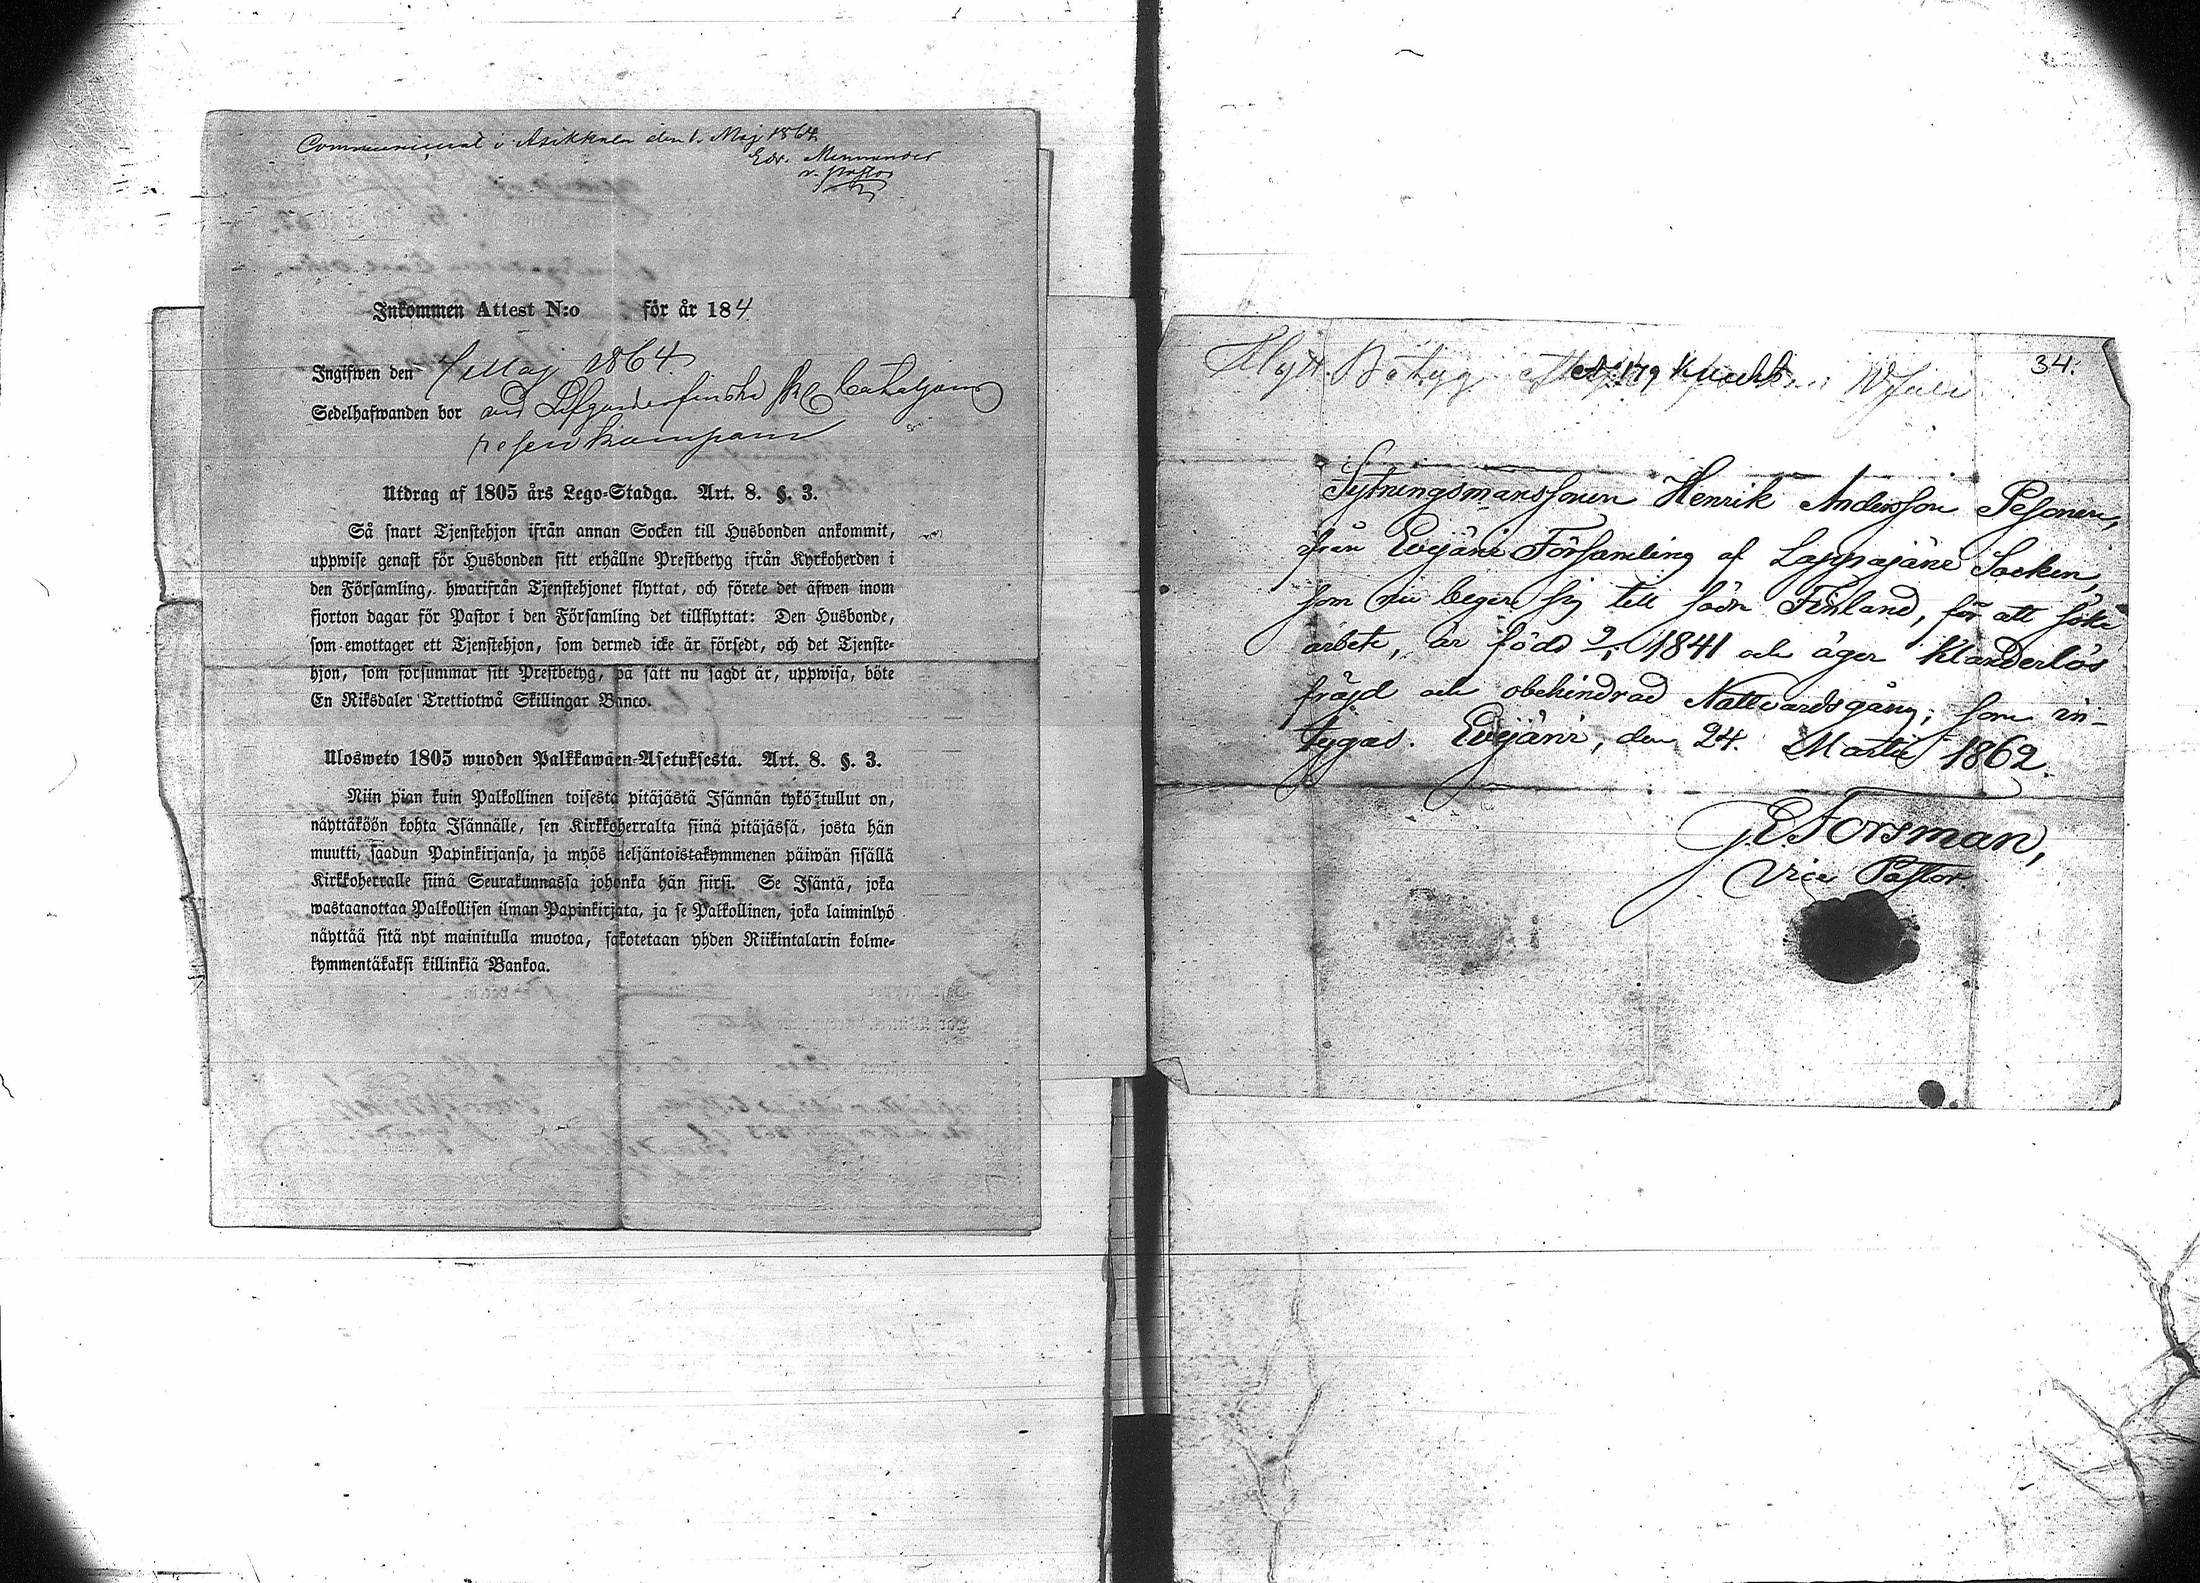 Communicerat i Asikkala den 1. Maj 1864
Edv. Mennander
v. pastor
Inkommen Attest N:o för år 184
Ingifwen den 1 Maj 1864
Sedelhafwanden bor vid Lifgardes finska
kompani
Utdrag af 1805 års Lego-Stadga. Art. 8. §. 3.
Så snart Tjenstehjon ifrån annan Socken till Husbonden ankommit,
uppwise genast för Husbonden sitt erhållne Prestbetyg ifrån Kyrkoherden i
den Församling, hwarifrån Tjenstehjonet flyttat, och förete det äfwen inom
fjorton dagar för Pastor i den Församling det tillflyttat: Den Husbonde,
som emottager ett Tjenstehjon, som dermed icke är försedt, och det Tjenste-
hjon, som försummar sitt Prestbetyg, på sätt nu sagdt är, uppwisa, böte
En Riksdaler Trettiotwå Skillingar Banco.
Ulosweto 1805 wuoden Palkkawäen-Asetuksesta. Art. 8. §. 3.
Niin pian kuin Palkollinen toisesta pitäjästä Isännän tykö tullut on,
näyttäköön kohta Isännälle, sen Kirkkoherralta siinä pitäjässä, josta hän
muutti, saadun Papinkirjansa, ja myös neljäntoistakymmenen päiwän sisällä
Kirkkoherralle siinä Seurakunnassa johonka hän siirsi. Se Isäntä, joka
wastaanottaa Palkollisen ilman Papinkirjata, ja se Palkollinen, joka laiminlyö
näyttää sitä nyt mainitulla muotoa, sakotetaan yhden Riikintalarin kolme-
kymmentäkaksi killinkiä Bankoa.
34.
Flytt. Betyg
Sytningsmanssonen Henrik Andersson Pesonen,
från Evijärvi Församling af Lappajärvi Socken,
som nu beger sig till södr Finland, för att söka
arbete, är född 2/1 1841 och äger klanderlös
fräjd och obehindrad Nattvardsgång; som in-
tygas. Evijärvi, den 24. Martii 1862.
J. E. Forsman,
Vice Pastor.